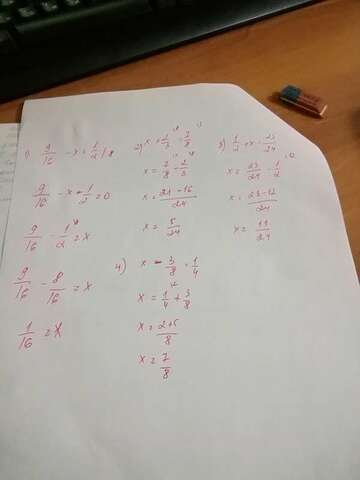 1) 9/16 - x = 1/2 /8
9/16 - x - 1/2 = 0
9/16 - 1/2 = x
9/16 - 8/16 = x
1/16 = x
2) x + 2/3 = 7/8
x = 7/8 - 2/3
x = 21-16/24
x = 5/24
3) 1/2 + x = 23/24
x = 23/24 - 1/2
x = 23-12/24
x = 11/24
4) x - 3/8 = 1/4
x = 1/4 + 3/8
x = 2+5/8
x = 7/8